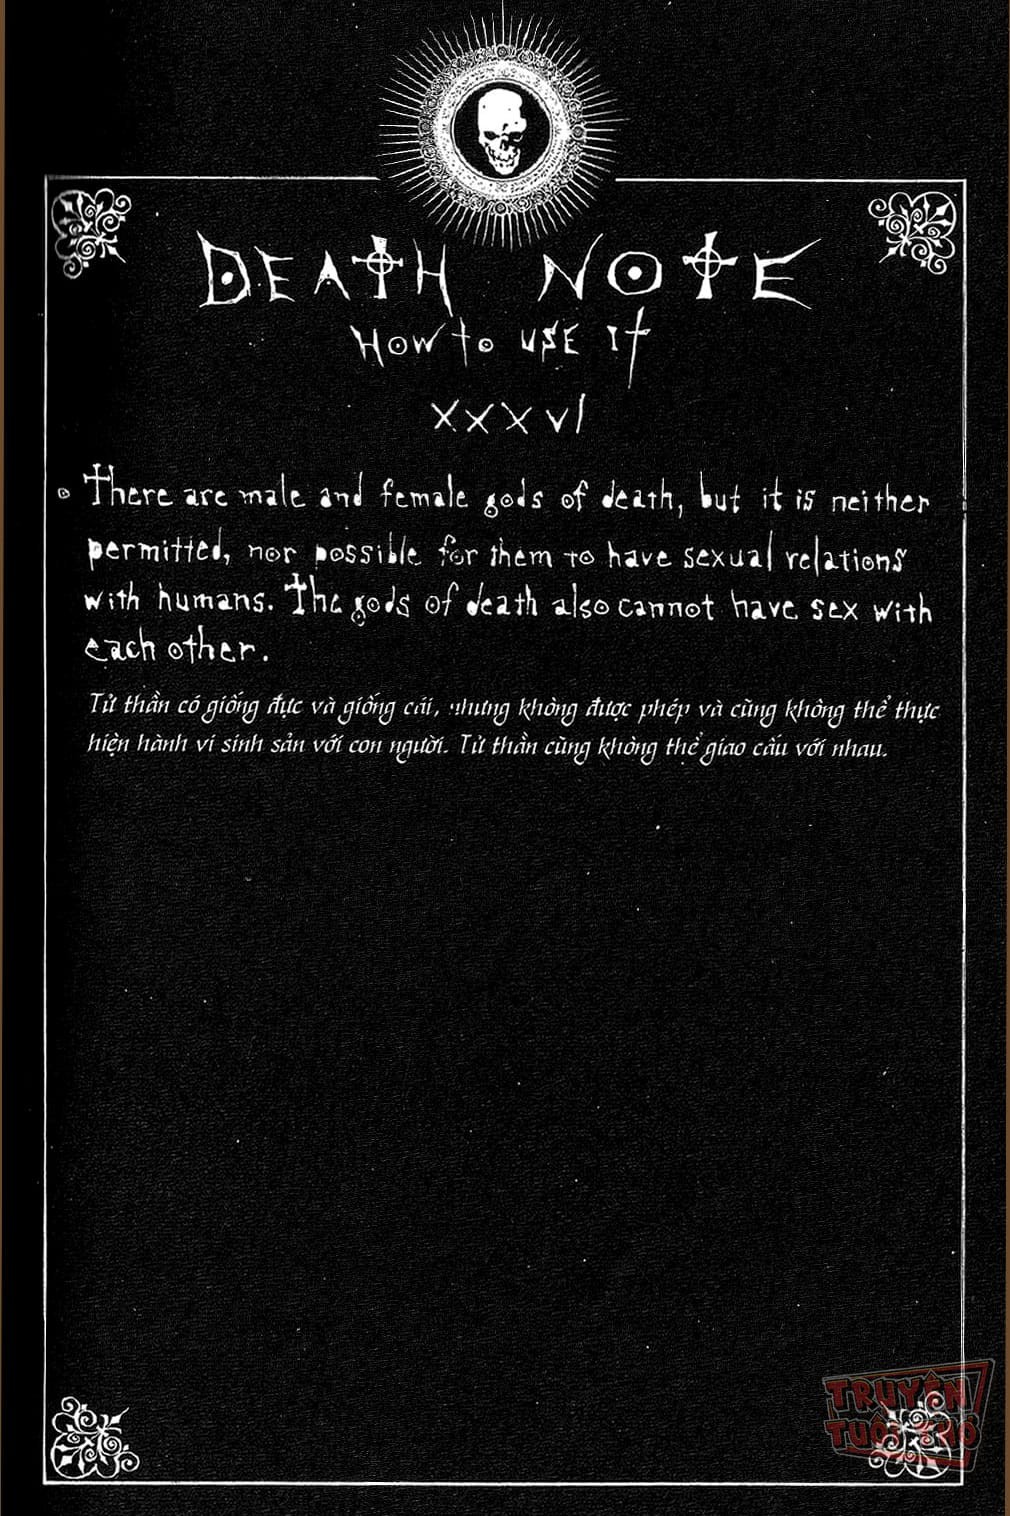 DEATH NOTE
HOW to USE It
XXXVI
There are male and female gods of death, but it is neither
permitted, nor possible for them to have sexual relations
with humans. The gods of death also cannot have sex with
each other.
Tử thần có giống đực và giống cái, nhưng không được phép và cũng không thể thực
hiện hành vi sinh sản với con người. Tử thần cũng không thể giao cấu với nhau.
TRUYỆN
TUỔI THƠ